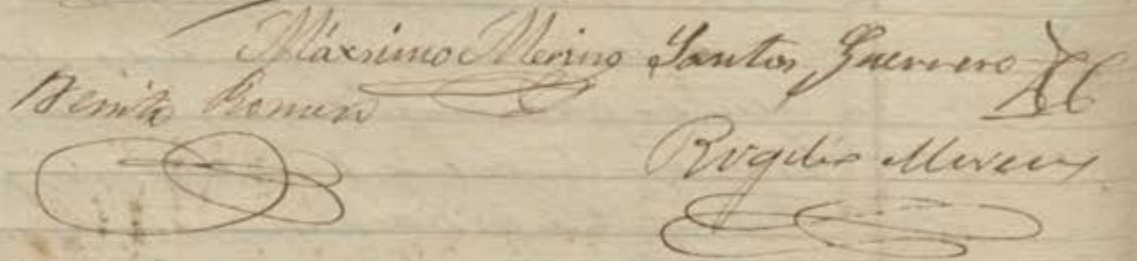 Máximo Merino Santos Guerrero
Benito Romero
Rogelio Moreno